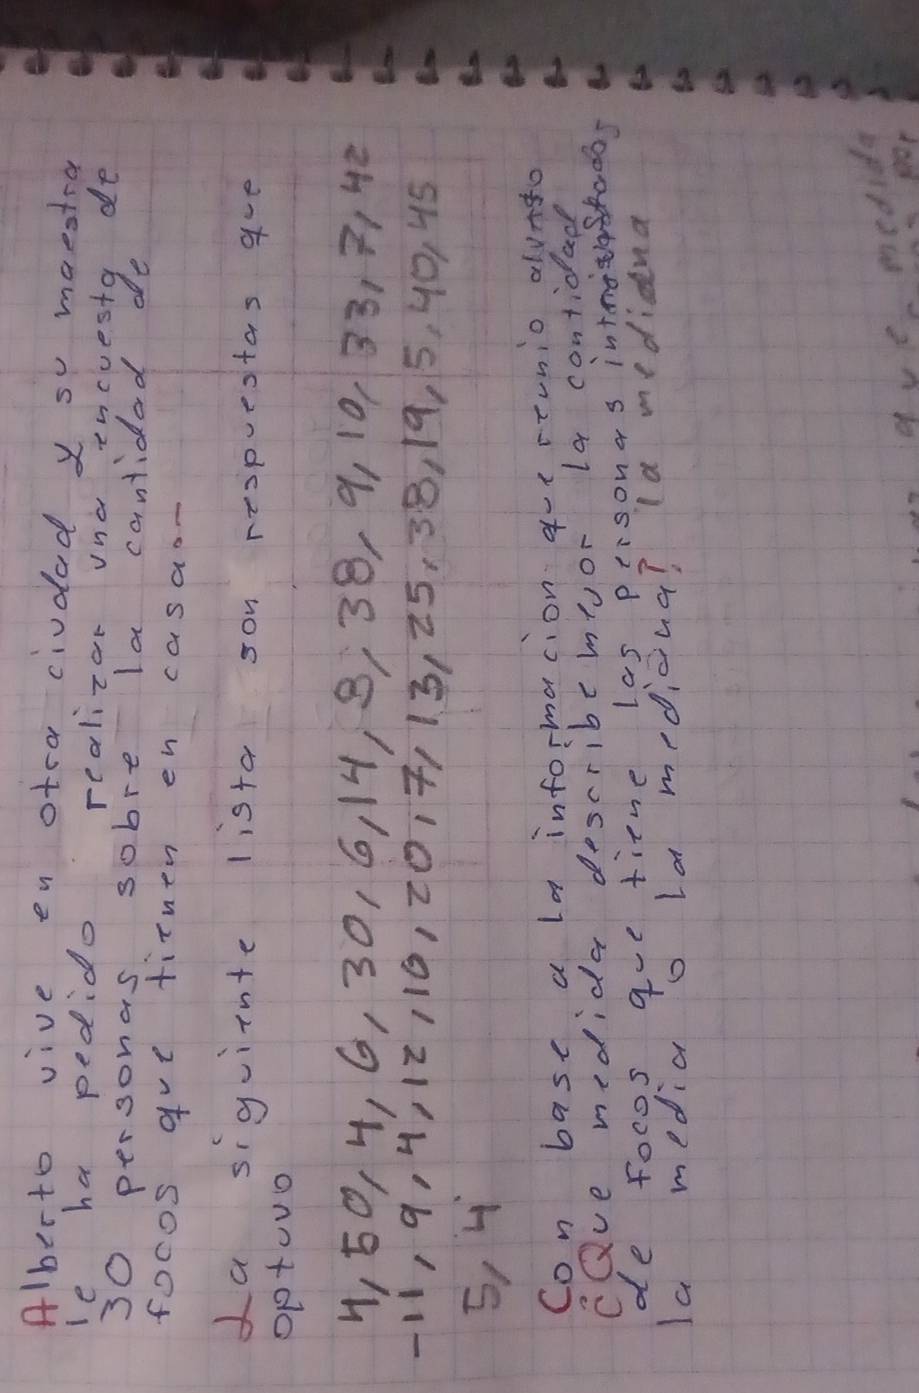 Alberto vive en otra ciudad y su maestra
le ha pedido realizar una encuesta de
30 personas sobre la cantidad de
focos que tienen en casa.-
La siguiente lista son respuestas que
optuvo
4, 50, 4, 6, 30, 6, 14, 8, 38, 9, 10, 33, 7, 42
-11, 9, 4, 12, 10, 20, 7, 13, 25, 38, 19, 5, 40, 45
5, 4
Con base a la información que reunio
¿Que medida describe mejor la contidad
de focos que tiene las personas
la media o la mediana? la mediana
medida
que